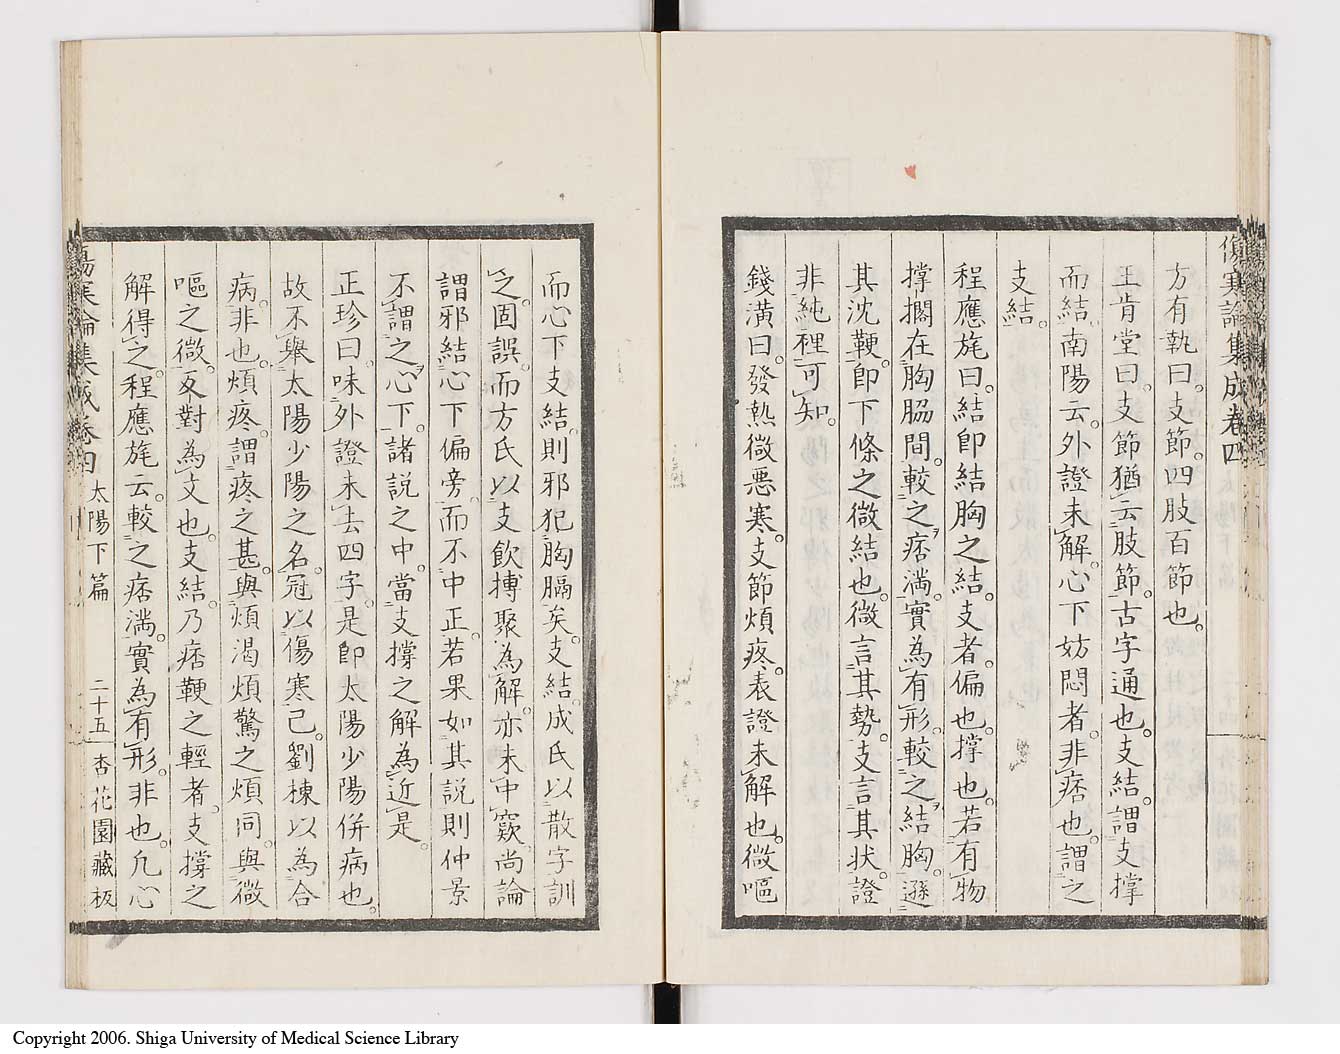 傷寒論集成卷四
方有執曰。支節。四肢百節也。
王肯堂曰。支節猶云肢節。古字通也。支結。謂支撑
而結。南陽云。外證未解。心下妨悶者。非痞也。謂之
支結。
程應旄曰。結卽結胸之結。支者。偏也。撑也。若有物
撑擱在胸脇間。較之痞滿。實為有形。較之結胸。遜
其沈鞕。卽下條之微結也。微言其勢。支言其狀。證
非純裡可知。
錢潢曰。發熱微悪寒。支節煩疼。表證未解也。微嘔
而心下支結。則邪犯胸膈矣。支結。成氏以散字訓
之。固誤。而方氏以支飲搏聚為解。亦未中窾。尚論
謂邪結心下偏旁。而不中正。若果如其說則仲景
不謂之心下。諸説之中。當支撐之解為近是。
正珍曰。味外證未去四字。是卽太陽少陽併病也。
故不舉太陽少陽之名。冠以傷寒已。劉棟以為合
病。非也。煩疼。謂疼之甚。與煩渴煩驚之煩同。與微
嘔之微。反對為文也。支結。乃痞鞕之輕者。支撐之
解得之。程應旄云。較之痞滿。實為有形。非也。凡心
傷寒論集成卷四 太陽下篇 二十五 杏花園藏板
Copyright 2006. Shiga University of Medical Science Library